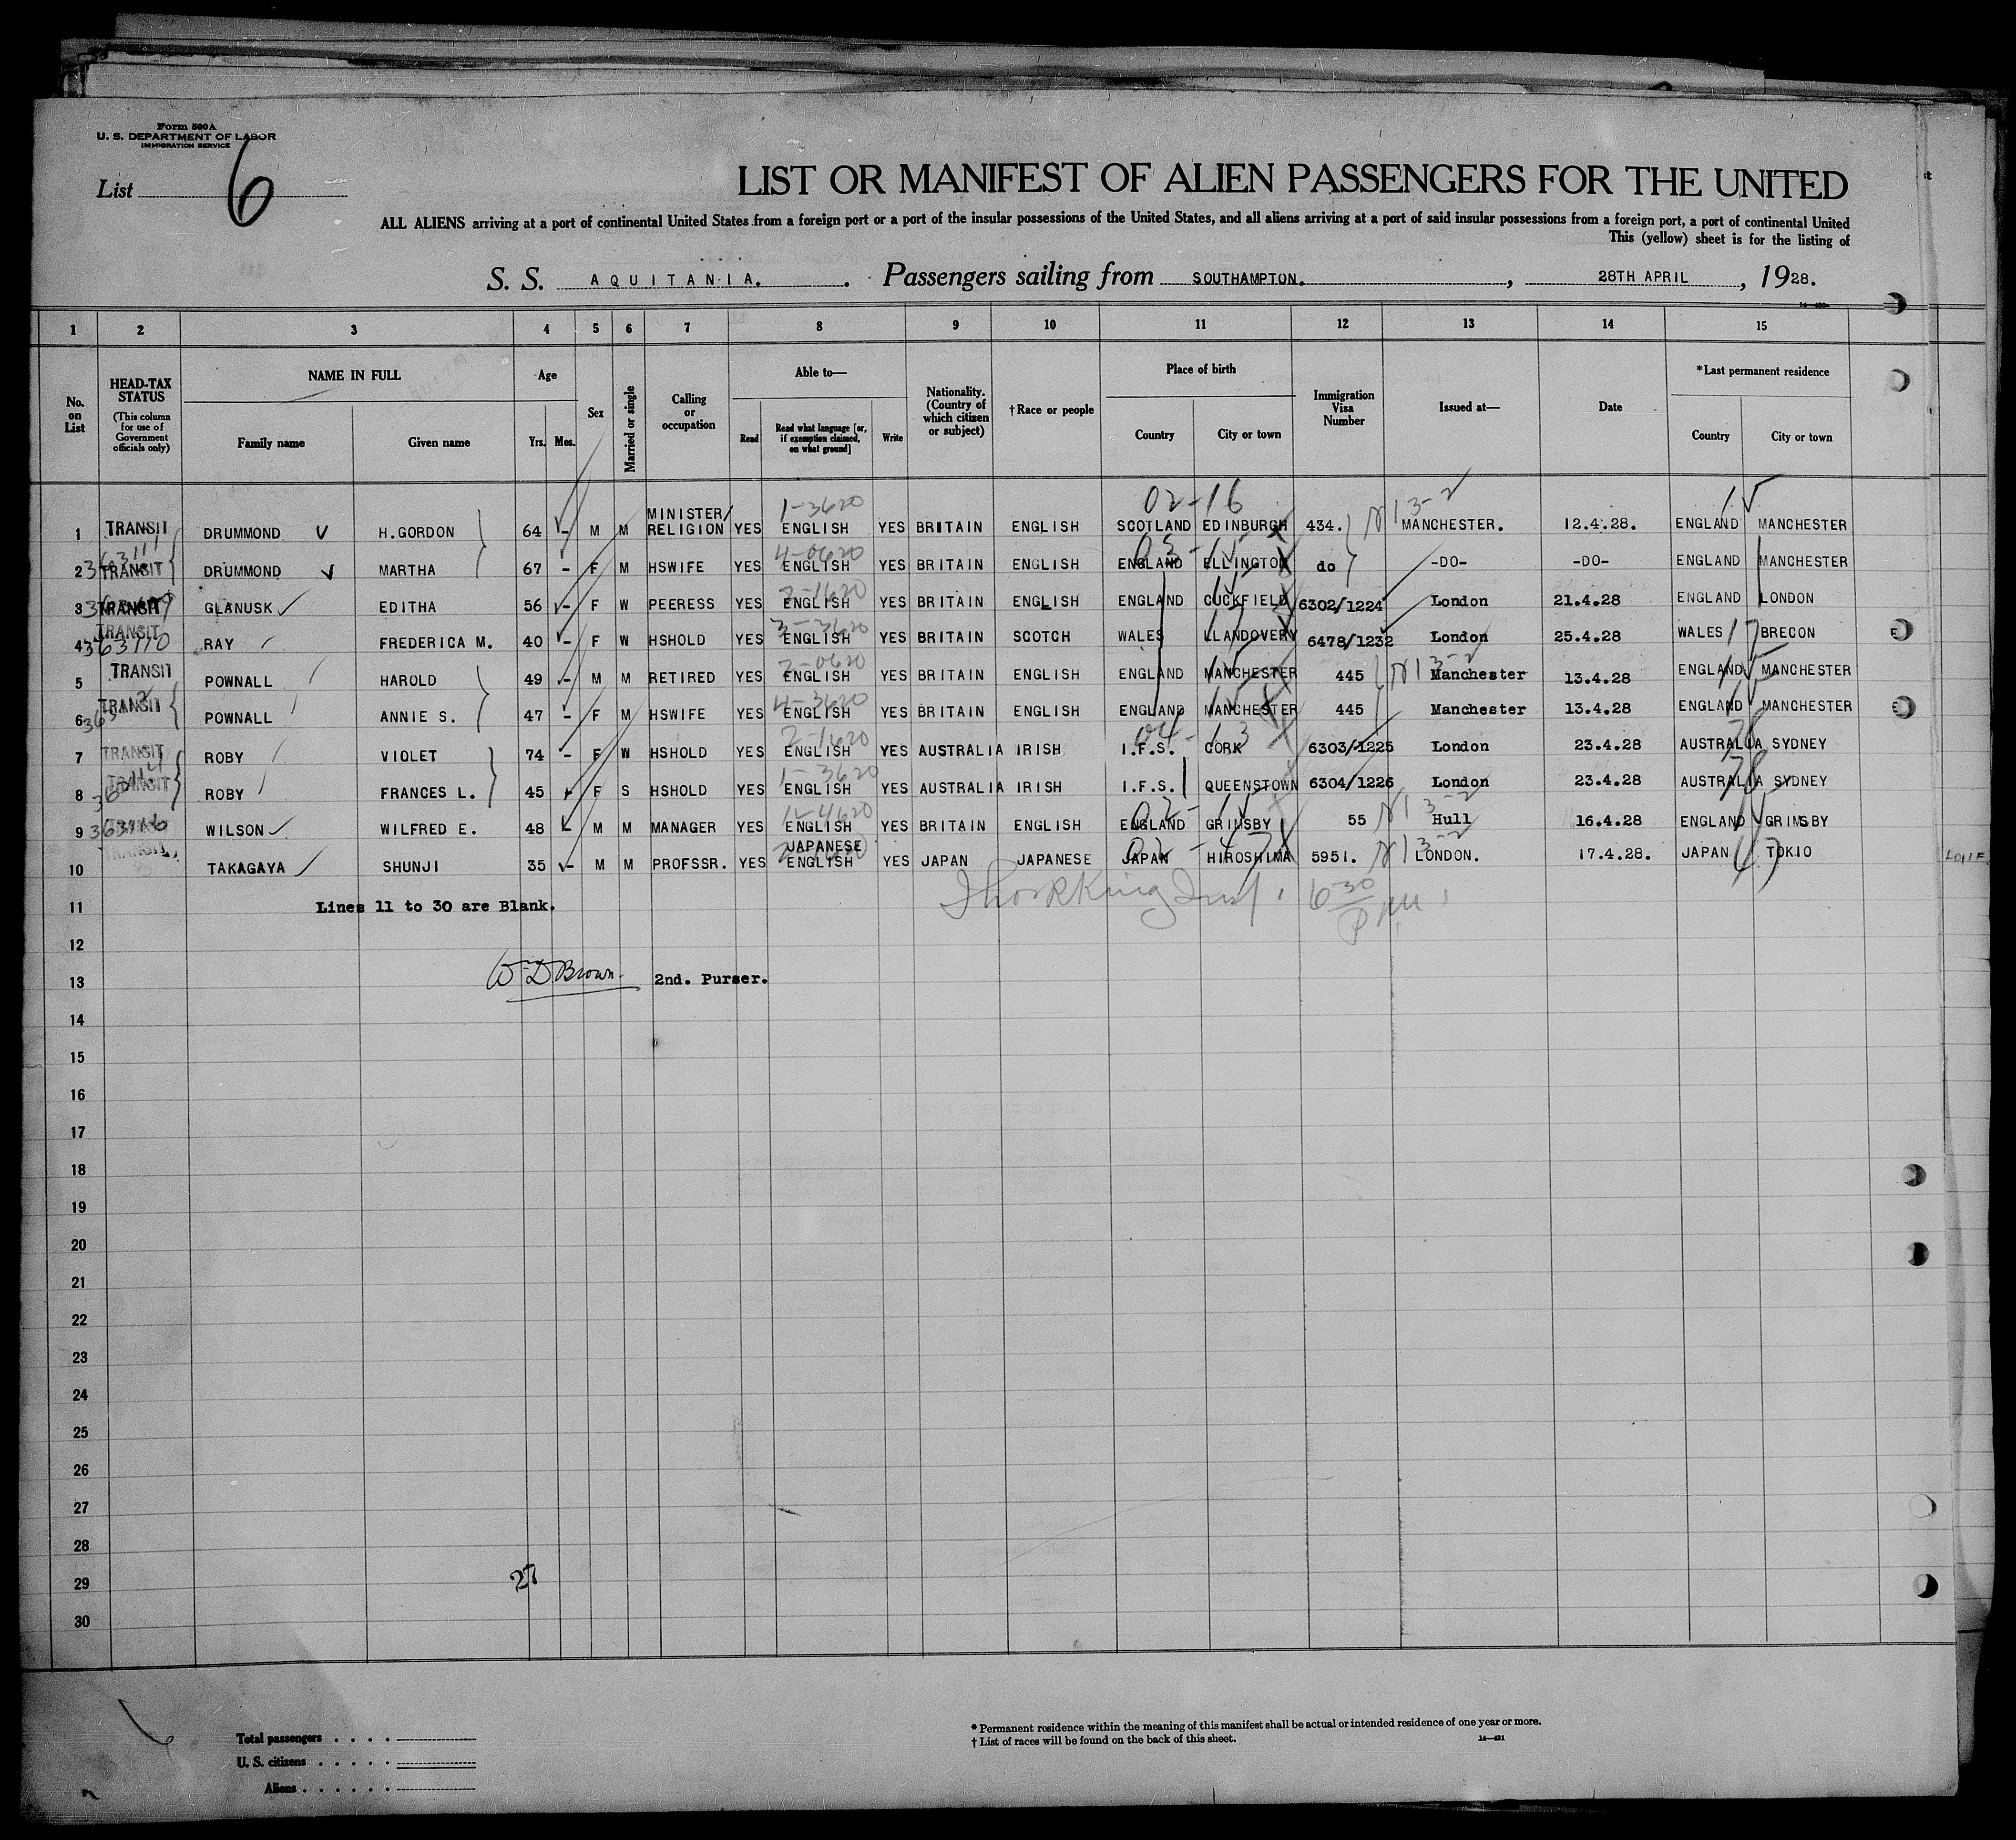 Form 500A
U. S. DEPARTMENT OF LABOR
IMMIGRATION SERVICE
List 6
LIST OR MANIFEST OF ALIEN PASSENGERS FOR THE UNITED
ALL ALIENS arriving at a port of continental United States from a foreign port or a port of the insular possessions of the United States, and all aliens arriving at a port of said insular possessions from a foreign port, a port of continental United
This (yellow) sheet is for the listing of
S. S. AQUITANIA. Passengers sailing from SOUTHAMPTON. , 28TH APRIL , 1928.
1 2 3 4 5 6 7 8 9 10 11 12 13 14 15
No. on List
HEAD-TAX STATUS (This column for use of Government officials only)
NAME IN FULL Family name Given name
Age Yrs. Mos.
Sex
Married or single
Calling or occupation
Able to— Read Read what language [or, if exemption claimed, on what ground] Write
Nationality. (Country of which citizen or subject)
† Race or people
Place of birth Country City or town
Immigration Visa Number
Issued at—
Date
*Last permanent residence Country City or town
02-16 1-3620 N13-2
1 TRANSIT DRUMMOND H.GORDON 64 - M M MINISTER/ RELIGION YES ENGLISH YES BRITAIN ENGLISH SCOTLAND EDINBURGH 434. MANCHESTER. 12.4.28. ENGLAND MANCHESTER
2 TRANSIT DRUMMOND MARTHA 67 - F M HSWIFE YES ENGLISH YES BRITAIN ENGLISH ENGLAND ELLINGTON do -DO- -DO- ENGLAND MANCHESTER
3 TRANSIT GLANUSK EDITHA 56 - F W PEERESS YES ENGLISH YES BRITAIN ENGLISH ENGLAND CUCKFIELD 6302/1224 London 21.4.28 ENGLAND LONDON
4 TRANSIT 363110 RAY FREDERICA M. 40 - F W HSHOLD YES ENGLISH YES BRITAIN SCOTCH WALES LLANDOVERY 6478/1232 London 25.4.28 WALES BRECON
5 TRANSIT POWNALL HAROLD 49 - M M RETIRED YES ENGLISH YES BRITAIN ENGLISH ENGLAND MANCHESTER 445 Manchester 13.4.28 ENGLAND MANCHESTER
6 TRANSIT POWNALL ANNIE S. 47 - F M HSWIFE YES ENGLISH YES BRITAIN ENGLISH ENGLAND MANCHESTER 445 Manchester 13.4.28 ENGLAND MANCHESTER
7 TRANSIT ROBY VIOLET 74 - F W HSHOLD YES ENGLISH YES AUSTRALIA IRISH I.F.S. CORK 6303/1225 London 23.4.28 AUSTRALIA SYDNEY
8 TRANSIT ROBY FRANCES L. 45 F S HSHOLD YES ENGLISH YES AUSTRALIA IRISH I.F.S. QUEENSTOWN 6304/1226 London 23.4.28 AUSTRALIA SYDNEY
9 TRANSIT WILSON WILFRED E. 48 - M M MANAGER YES ENGLISH YES BRITAIN ENGLISH ENGLAND GRIMSBY 55 Hull 16.4.28 ENGLAND GRIMSBY
10 TRANSIT TAKAGAYA SHUNJI 35 - M M PROFSSR. YES JAPANESE ENGLISH YES JAPAN JAPANESE JAPAN HIROSHIMA 5951. LONDON. 17.4.28. JAPAN TOKIO
11 Lines 11 to 30 are Blank.
12
13 Wm D Brown. 2nd. Purser.
14
15
16
17
18
19
20
21
22
23
24
25
26
27
28
29 27
30
Total passengers
U. S. citizens
Aliens
* Permanent residence within the meaning of this manifest shall be actual or intended residence of one year or more.
† List of races will be found on the back of this sheet.
14—421